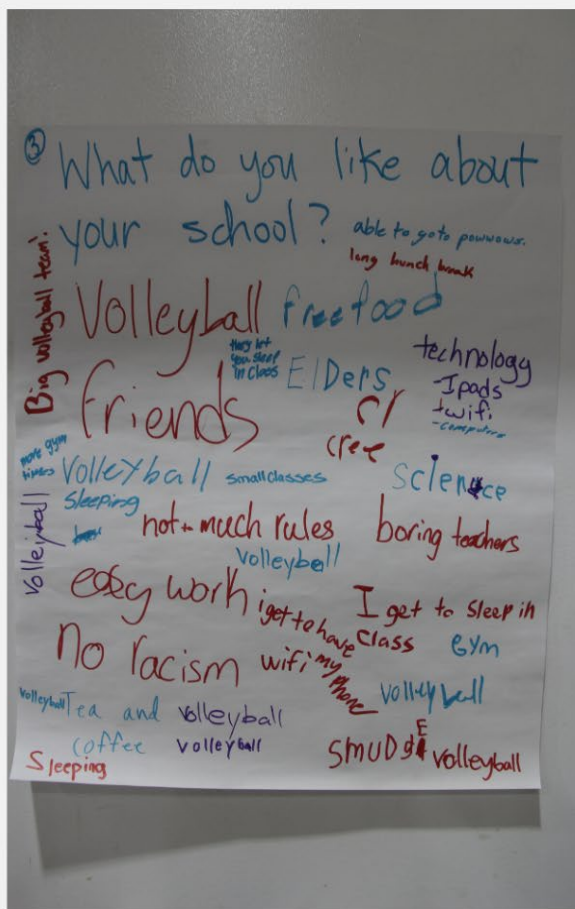 ③ What do you like about
your school?
able to go to powwows.
long lunch break
Big volleyball team!
Volleyball
free food
they let
you sleep
in class
ElDers
technology
-Ipads
+wifi
-computers
friends
cree
more gym
times
Volleyball
small classes
science
sleeping
volleyball
not-much rules
boring teachers
volleyball
easy work
i get to have
my phone
I get to sleep in
class
Gym
no racism
wifi
volleyball
volleyball
Tea and
coffee
volleyball
volleyball
smUDgE
volleyball
Sleeping